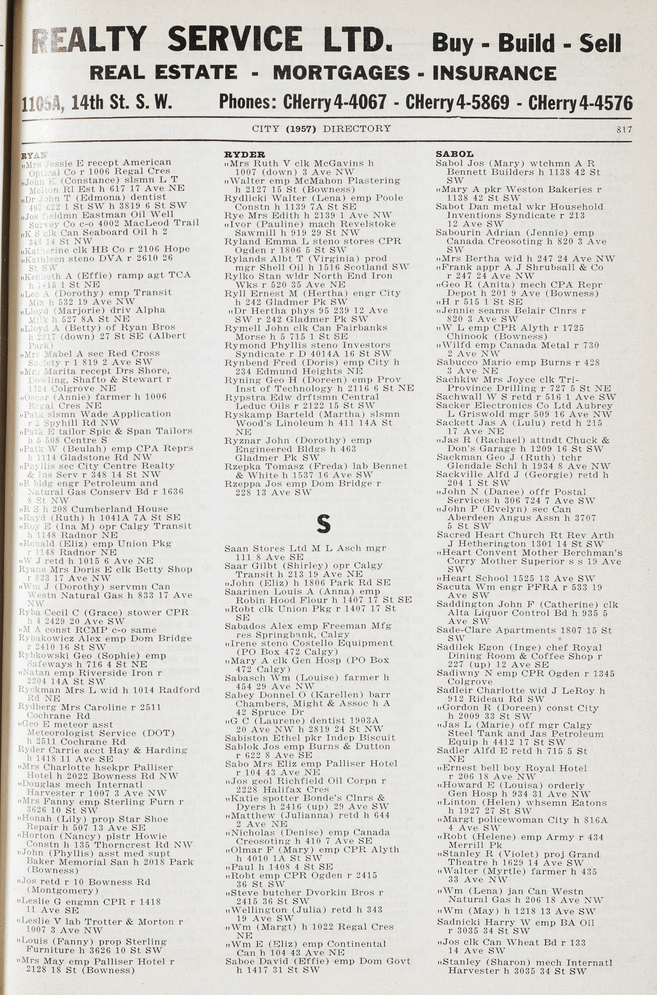 REALTY SERVICE LTD. Buy - Build - Sell
REAL ESTATE - MORTGAGES - INSURANCE
1105A, 14th St. S. W. Phones: CHerry 4-4067 - CHerry 4-5869 - CHerry 4-4576
CITY (1957) DIRECTORY 817
RYAN
"Mrs Jessie E recept American
Optical Co r 1006 Regal Cres
"John E (Constance) slsmn L T
Melton Rl Est h 617 17 Ave NE
"Dr John T (Edmona) dentist
407 622 1 St SW h 3819 6 St SW
"Jos fieldmn Eastman Oil Well
Survey Co c-o 4002 MacLeod Trail
"K S clk Can Seaboard Oil h 2
348 14 St NW
"Katherine clk HB Co r 2106 Hope
"Kathleen steno DVA r 2610 26
St SW
"Kenneth A (Effie) ramp agt TCA
h 1415 1 St NE
"Leo A (Dorothy) emp Transit
Mix h 532 19 Ave NW
"Lloyd (Marjorie) driv Alpha
Milk h 527 8A St NE
"Lloyd A (Betty) of Ryan Bros
h 2217 (down) 27 St SE (Albert
Park)
"Mrs Mabel A sec Red Cross
Society r 1 819 2 Ave SW
"Mrs Marita recept Drs Shore,
Dowling, Shafto & Stewart r
1324 Colgrove NE
"Oscar (Annie) farmer h 1006
Regal Cres NE
"Patk slsmn Wade Application
r 2 Spyhill Rd NW
"Patk E tailor Spic & Span Tailors
h 5 508 Centre S
"Patk W (Beulah) emp CPA Reprs
h 1114 Gladstone Rd NW
"Phyllis sec City Centre Realty
& Ins Serv r 348 14 St NW
"R bldg engr Petroleum and
Natural Gas Conserv Bd r 1636
8 St NW
"R S h 208 Cumberland House
"Rayd (Ruth) h 1041A 7A St SE
"Roy E (Ina M) opr Calgy Transit
h 1148 Radnor NE
"Ronald (Eliz) emp Union Pkg
r 1148 Radnor NE
"W J retd h 1015 6 Ave NE
Ryans Mrs Doris E clk Betty Shop
r 833 17 Ave NW
"Wm J (Dorothy) servmn Can
Westn Natural Gas h 833 17 Ave
NW
Ryba Cecil C (Grace) stower CPR
h 4 2429 20 Ave SW
"M A const RCMP c-o same
Rybakowicz Alex emp Dom Bridge
r 2410 16 St SW
Rybkowski Geo (Sophie) emp
Safeways h 716 4 St NE
"Natan emp Riverside Iron r
2204 14A St SW
Ryckman Mrs L wid h 1014 Radford
Rd NE
Rydberg Mrs Caroline r 2511
Cochrane Rd
"Geo E meteor asst
Meteorologist Service (DOT)
h 2511 Cochrane Rd
Ryder Carrie acct Hay & Harding
h 1418 11 Ave SE
"Mrs Charlotte hsekpr Palliser
Hotel h 2022 Bowness Rd NW
"Douglas mech Internatl
Harvester r 1007 3 Ave NW
"Mrs Fanny emp Sterling Furn r
3626 10 St SW
"Honah (Lily) prop Star Shoe
Repair h 507 13 Ave SE
"Horton (Nancy) plstr Howie
Constn h 135 Thorncrest Rd NW
"John (Phyllis) asst med supt
Baker Memorial San h 2018 Park
(Bowness)
"Jos retd r 10 Bowness Rd
(Montgomery)
"Leslie G engmn CPR r 1418
11 Ave SE
"Leslie V lab Trotter & Morton r
1007 3 Ave NW
"Louis (Fanny) prop Sterling
Furniture h 3626 10 St SW
"Mrs May emp Palliser Hotel r
2128 18 St (Bowness)
RYDER
"Mrs Ruth V clk McGavins h
1007 (down) 3 Ave NW
"Walter emp McMahon Plastering
h 2127 15 St (Bowness)
Rydlicki Walter (Lena) emp Poole
Constn h 1139 7A St SE
Rye Mrs Edith h 2139 1 Ave NW
"Ivor (Pauline) mach Revelstoke
Sawmill h 919 29 St NW
Ryland Emma L steno stores CPR
Ogden r 1806 5 St SW
Rylands Albt T (Virginia) prod
mgr Shell Oil h 1516 Scotland SW
Rylko Stan wldr North End Iron
Wks r 520 35 Ave NE
Ryll Ernest M (Hertha) engr City
h 242 Gladmer Pk SW
"Dr Hertha phys 95 239 12 Ave
SW r 242 Gladmer Pk SW
Rymell John clk Can Fairbanks
Morse h 5 715 1 St SE
Rymond Phyllis steno Investors
Syndicate r D 4014A 16 St SW
Rynbend Fred (Doris) emp City h
234 Edmund Heights NE
Ryning Geo H (Doreen) emp Prov
Inst of Technology h 2116 6 St NE
Rypstra Edw drftsmn Central
Leduc Oils r 2122 15 St SW
Ryskamp Barteld (Martha) slsmn
Wood's Linoleum h 411 14A St
NE
Ryznar John (Dorothy) emp
Engineered Bldgs h 463
Gladmer Pk SW
Rzepka Tomasz (Freda) lab Bennet
& White h 1537 16 Ave SW
Rzeppa Jos emp Dom Bridge r
228 13 Ave SW
S
Saan Stores Ltd M L Asch mgr
111 8 Ave SE
Saar Gilbt (Shirley) opr Calgy
Transit h 213 19 Ave NE
"John (Eliz) h 1806 Park Rd SE
Saarinen Louis A (Anna) emp
Robin Hood Flour h 1407 17 St SE
"Robt clk Union Pkg r 1407 17 St
SE
Sabados Alex emp Freeman Mfg
res Springbank, Calgy
"Irene steno Costello Equipment
(PO Box 472 Calgy)
"Mary A clk Gen Hosp (PO Box
472 Calgy)
Sabasch Wm (Louise) farmer h
454 29 Ave NW
Sabey Donnel O (Karellen) barr
Chambers, Might & Assoc h A
42 Spruce Dr
"G C (Laurene) dentist 1903A
20 Ave NW h 2819 24 St NW
Sabiston Ethel pkr Indep Biscuit
Sablok Jos emp Burns & Dutton
r 622 8 Ave SE
Sabo Mrs Eliz emp Palliser Hotel
r 104 43 Ave NE
"Jos geol Richfield Oil Corpn r
2228 Halifax Cres
"Katie spotter Bonde's Clnrs &
Dyers h 2416 (up) 29 Ave SW
"Matthew (Julianna) retd h 644
2 Ave NE
"Nicholas (Denise) emp Canada
Creosoting h 410 7 Ave SE
"Olmar F (Mary) emp CPR Alyth
h 4010 1A St SW
"Paul h 1408 4 St SE
"Robt emp CPR Ogden r 2415
36 St SW
"Steve butcher Dvorkin Bros r
2415 36 St SW
"Wellington (Julia) retd h 343
19 Ave SW
"Wm (Margt) h 1022 Regal Cres
NE
"Wm E (Eliz) emp Continental
Can h 104 43 Ave NE
Saboe David (Effie) emp Dom Govt
h 1417 31 St SW
SABOL
Sabol Jos (Mary) wtchmn A R
Bennett Builders h 1138 42 St
SW
"Mary A pkr Weston Bakeries r
1138 42 St SW
Sabot Dan metal wkr Household
Inventions Syndicate r 213
12 Ave SW
Sabourin Adrian (Jennie) emp
Canada Creosoting h 820 3 Ave
SW
"Mrs Bertha wid h 247 24 Ave NW
"Frank appr A J Shrubsall & Co
r 247 24 Ave NW
"Geo R (Anita) mech CPA Repr
Depot h 201 9 Ave (Bowness)
"H r 515 1 St SE
"Jennie seams Belair Clnrs r
820 3 Ave SW
"W L emp CPR Alyth r 1725
Chinook (Bowness)
"Wilfd emp Canada Metal r 730
2 Ave NW
Sabucco Mario emp Burns r 428
3 Ave NE
Sachkiw Mrs Joyce clk Tri-
Province Drilling r 727 5 St NE
Sachwall W S retd r 516 1 Ave SW
Sacker Electronics Co Ltd Aubrey
L Griswold mgr 509 16 Ave NW
Sackett Jas A (Lulu) retd h 215
17 Ave NE
"Jas R (Rachael) attndt Chuck &
Don's Garage h 1209 16 St SW
Sackman Geo J (Ruth) tchr
Glendale Schl h 1934 8 Ave NW
Sackville Alfd J (Georgie) retd h
204 1 St SW
"John N (Danee) offr Postal
Services h 306 724 7 Ave SW
"John P (Evelyn) sec Can
Aberdeen Angus Assn h 3707
5 St SW
Sacred Heart Church Rt Rev Arth
J Hetherington 1301 14 St SW
"Heart Convent Mother Berchman's
Corry Mother Superior s s 19 Ave
SW
"Heart School 1525 13 Ave SW
Sacuta Wm engr PFRA r 533 19
Ave SW
Saddington John F (Catherine) clk
Alta Liquor Control Bd h 935 5
Ave SW
Sade-Clare Apartments 1807 15 St
SW
Sadilek Egon (Inge) chef Royal
Dining Room & Coffee Shop r
227 (up) 12 Ave SE
Sadiwny N emp CPR Ogden r 1345
Colgrove
Sadleir Charlotte wid J LeRoy h
912 Rideau Rd SW
"Gordon R (Doreen) const City
h 2009 33 St SW
"Jas L (Marie) off mgr Calgy
Steel Tank and Jas Petroleum
Equip h 4412 17 St SW
Sadler Alfd E retd h 715 5 St
NE
"Ernest bell boy Royal Hotel
r 206 18 Ave NW
"Howard E (Louisa) orderly
Gen Hosp h 934 31 Ave NW
"Linton (Helen) whsemn Eatons
h 1927 27 St SW
"Margt policewoman City h 816A
4 Ave SW
"Robt (Helene) emp Army r 434
Merrill Pk
"Stanley R (Violet) proj Grand
Theatre h 1629 14 Ave SW
"Walter (Myrtle) farmer h 435
33 Ave NW
"Wm (Lena) jan Can Westn
Natural Gas h 206 18 Ave NW
"Wm (May) h 1218 13 Ave SW
Sadnicki Harry W emp BA Oil
r 3035 34 St SW
"Jos clk Can Wheat Bd r 133
14 Ave SW
"Stanley (Sharon) mech Internatl
Harvester h 3035 34 St SW